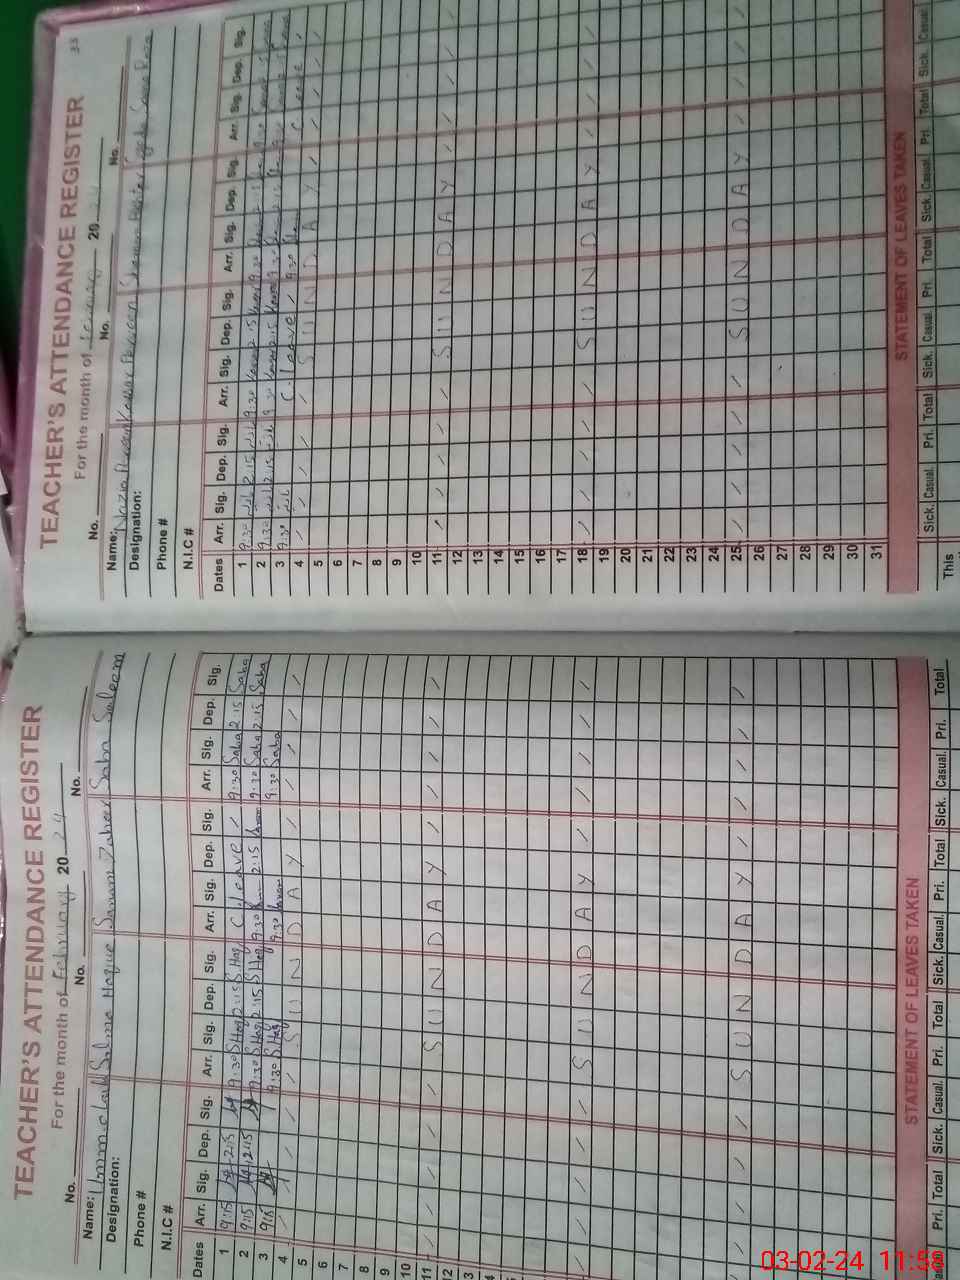 TEACHER'S ATTENDANCE REGISTER
For the month of February 20 24
No. No. No.
Name: Salma Haque Sanam Zaheer Saba Saleem
Designation:
Phone #
N.I.C #
Dates Arr. Sig. Dep. Sig. Arr. Sig. Dep. Sig. Arr. Sig. Dep. Sig. Arr. Sig. Dep. Sig.
1 9:15 2:15 9:30 S.Haq 2:15 S.Haq C. leave / 9:30 Saba 2:15 Saba
2 9:15 2:15 9:30 S.Haq 2:15 S.Haq 9:30 2:15 9:30 Saba 2:15 Saba
3 9:15 9:30 S.Haq 9:30 9:30 Saba
4 / / / / / S U N D A Y / / / / /
5
6
7
8
9
10
11 / / / / / S U N D A Y / / / / /
12
3
4
/ / / / / S U N D A Y / / / / /
/ / / / / S U N D A Y / / / / /
STATEMENT OF LEAVES TAKEN
Pri. Total Sick. Casual. Pri. Total Sick. Casual. Pri. Total Sick. Casual. Pri. Total
33
TEACHER'S ATTENDANCE REGISTER
For the month of February 20 24
No. No. No.
Name: Nazia Kausar Parveen
Designation:
Phone #
N.I.C #
Dates Arr. Sig. Dep. Sig. Arr. Sig. Dep. Sig. Arr. Sig. Dep. Sig. Arr. Sig. Dep. Sig.
1 9:30 2:15 9:30 2:15 9:30 2:15
2 9:30 2:15 9:30 2:15 9:30 2:15
3 9:30 C. leave / 9:30 C leave
4 / / / / / S U N D A Y / / / / /
5
6
7
8
9
10
11 / / / / / S U N D A Y / / / / /
12
13
14
15
16
17
18 / / / / / S U N D A Y / / / / /
19
20
21
22
23
24
25 / / / / / S U N D A Y / / / / /
26
27
28
29
30
31
STATEMENT OF LEAVES TAKEN
Sick. Casual. Pri. Total Sick. Casual. Pri. Total Sick. Casual. Pri. Total Sick. Casual
This
03-02-24 11:58